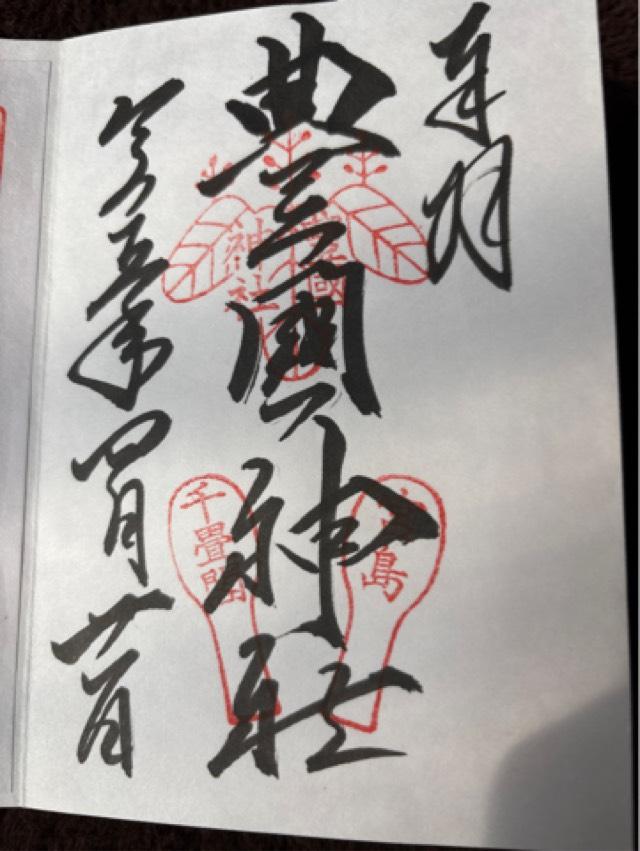 奉拝
豊國神社
令和五年四月廿一日
豊國
神社
宮島
千畳閣